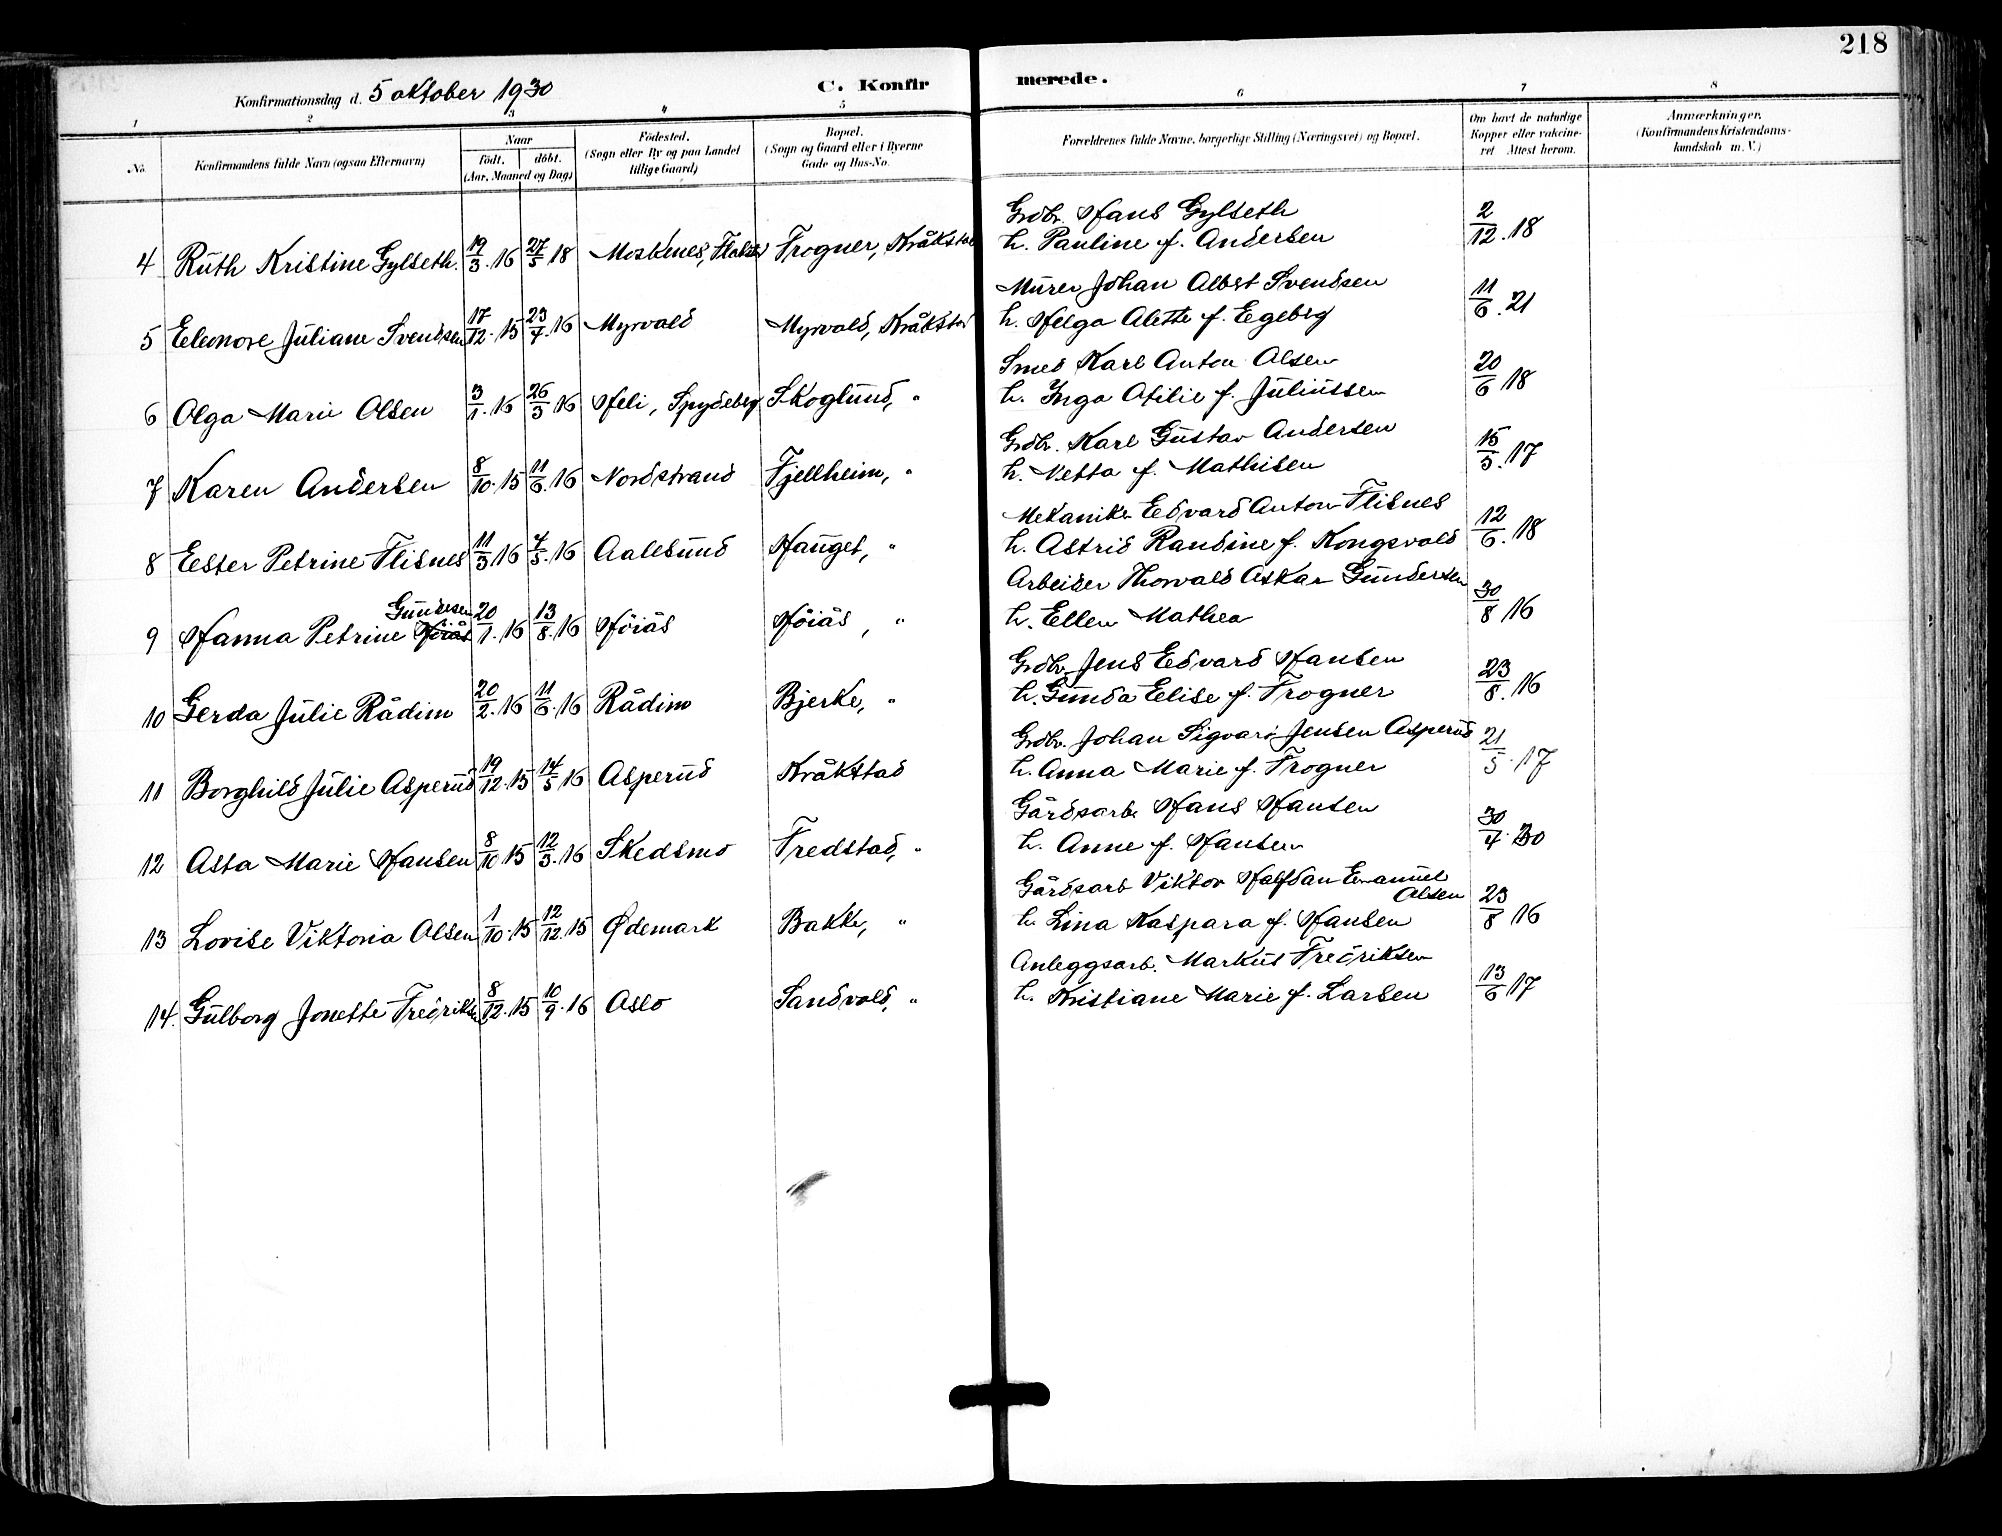 218
Konfirmationsdag d. 5 oktober 1930
C. Konfirmerede.
1 2 3 4 5 6 7 8
No.
Konfirmandens fulde Navn (ogsaa Efternavn)
Naar
födt. döbt.
(Aar, Maaned og Dag)
Födested.
(Sogn eller By og paa Landet
tillige Gaard)
Bopæl.
(Sogn og Gaard eller i Byerne
Gade og Hus-No.
Forældrenes fulde Navne, borgerlige Stilling (Næringsvei) og Bopæl.
Om havt de naturlige
Kopper eller vakcine-
ret Attest herom.
Anmærkninger.
(Konfirmandens Kristendoms-
kundskab m. V.)
Grdbr. Hans Gylseth
4 Ruth Kristine Gylseth. 19/3.16 27/5 18 Moskenes, Trogner, Kråkstad h. Pauline f. Andersen 2/12.18
Murer Johan Albert Svendsen
5 Eleonore Juliane Svendsen 17/12.15 23/4.16 Myrvold Myrvold, Kråkstad h. Helga Alette f. Egeberg 11/6.21
Smed Karl Anton Olsen
6 Olga Marie Olsen 3/1.16 26/3 16 Heli, Spydeberg Skoglund, " h. Inga Otilie f. Juliussen 20/6 18
Grdbr. Karl Gustav Andersen
7 Karen Andersen 8/10.15 11/6.16 Nordstrand Fjellheim, " h. Netta f. Mathisen 15/5.17
Mekaniker Edvard Anton Flisnes
8 Ester Petrine Flisnes 11/3 16 7/5.16 Aalesund Hauget, " h. Astrid Randine f. Kongsvold 12/6.18
Arbeider Thorvald Oskar Gundersen
Gundersen
9 Hanna Petrine Höiås 20/1.16 13/8.16 Höiås Höiås, " h. Ellen Mathea 30/8 16
Grdbr. Jens Edvard Hansen
10 Gerda Julie Rådim 20/2.16 11/6.16 Rådim Bjerke, " h. Gunda Elise f. Trogner 23/8.16
Grdbr. Johan Sigvard Jensen Asperud
11 Borghild Julie Asperud 19/12.15 14/5 16 Asperud Kråkstad h. Anna Marie f. Trogner 21/5.17
Gårdsarb. Hans Hansen
12 Asta Marie Hansen 8/10 15 12/3.16 Skedsmo Fredstad, " h. Anne f. Hansen 30/4.30
Gårdsarb Viktor Halfdan Emanuel
Olsen
13 Lovise Viktoria Olsen 1/10.15 12/12.15 Ødemark Bakke, " h. Lina Kaspara f. Hansen 23/8 16
Anleggsarb. Markus Fredriksen
14. Gulborg Jonette Fredriksen 8/12.15 10/9.16 Oslo Sandvold, " h. Kristiane Marie f. Larsen 13/6 17